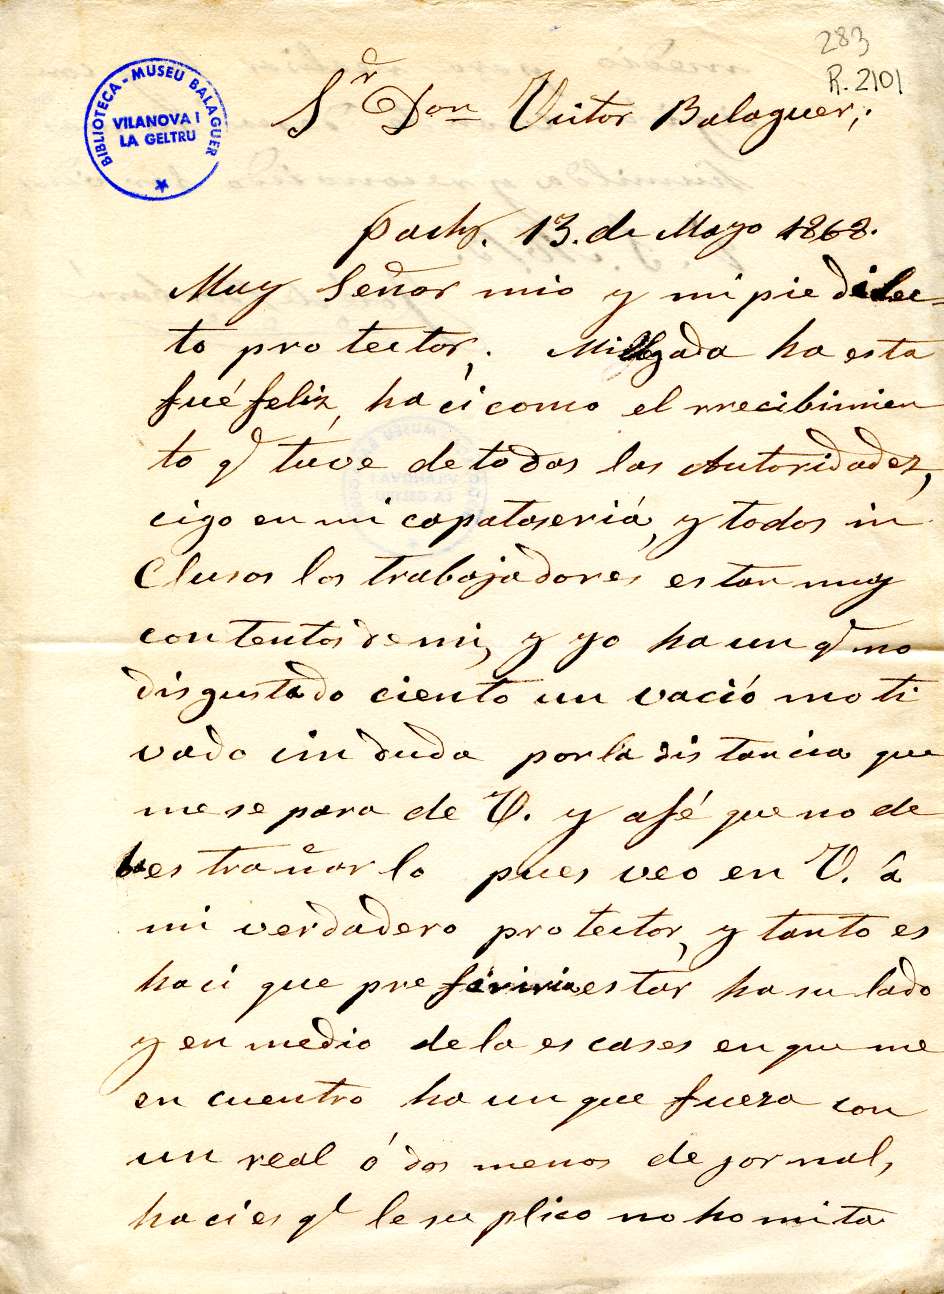 283
R. 2101
BIBLIOTECA - MUSEU BALAGUER
VILANOVA I
LA GELTRU
Sr Don Victor Balaguer;
13. de Mayo 1868.
Muy Señor mio y mi pre dilec=
to protector, Mi llegada ha esta
fué feliz, ha ci como el rrecibimien
to qe tuve de todas las Autoridadez,
cigo en mi capataseriá, y todos in
Clusos los trabajadores estan muy
contentos de mi, y yo ha un qe no
disgustado ciento un vació moti
vado cin duda por la distancia que
me se para de V. y afé que no de
be estrañar lo pues veo en V. á
mi verdadero protector, y tanto es
ha ci que pre feriria estar ha su lado
y en medio de la es cases en que me
en cuentro ha un que fuera con
un real ó dos menos de jornal,
ha ci es qe le su plico no ho mita